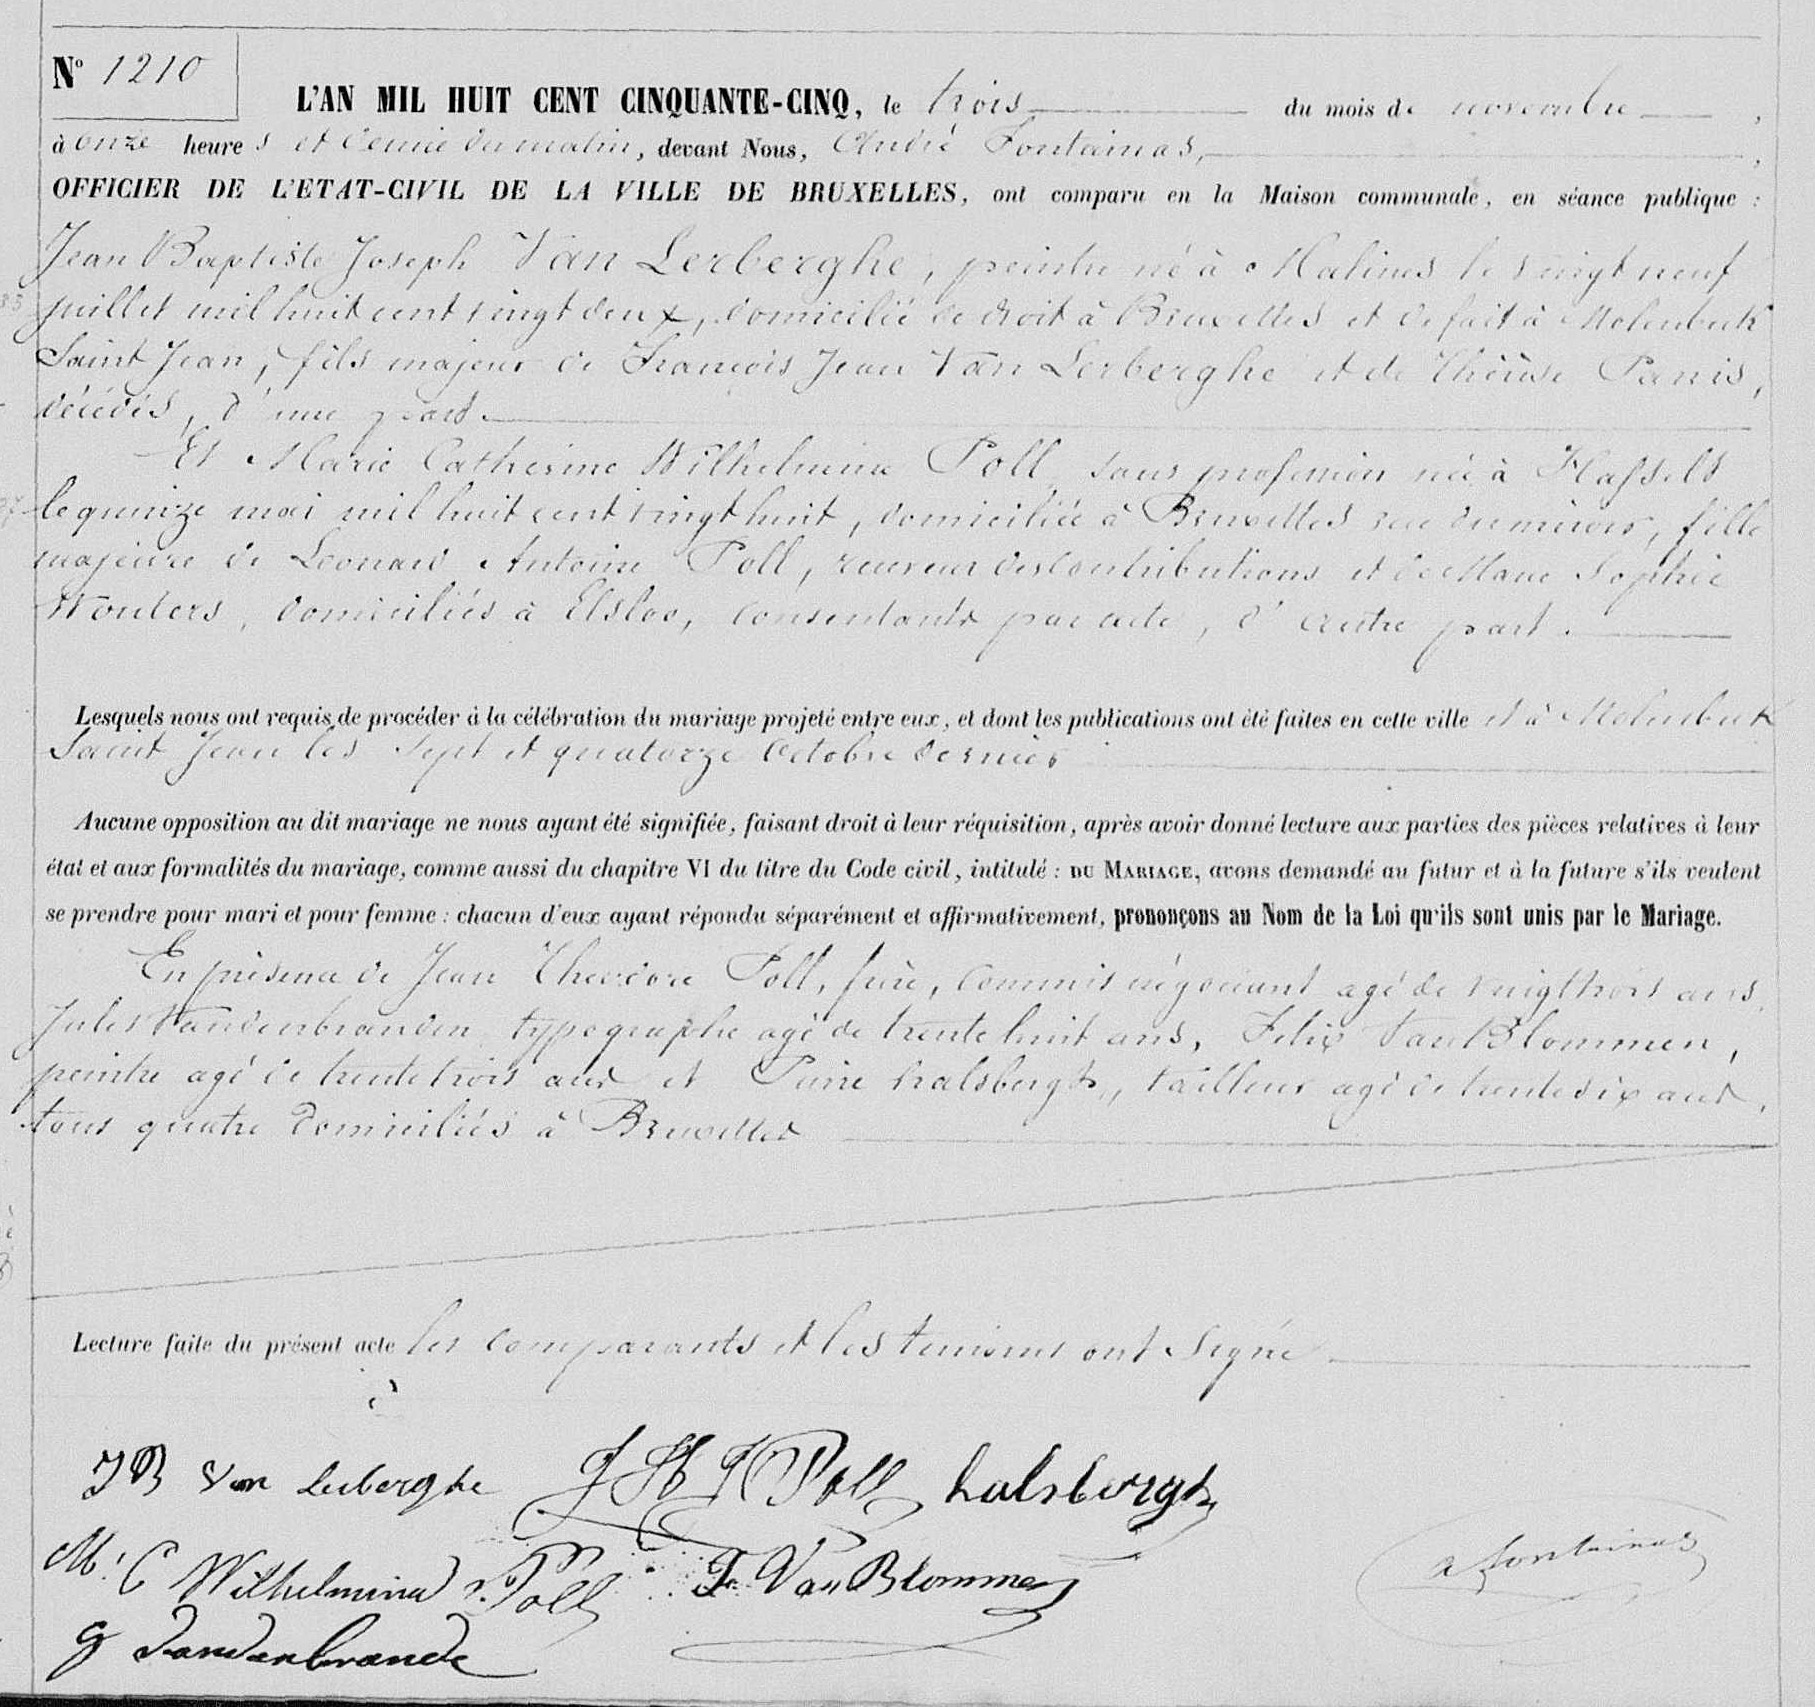 N° 1210
L'AN MIL HUIT CENT CINQUANTE-CINQ, le trois du mois de novembre,
à onze heures et demie du matin, devant Nous, André Fontainas,
OFFICIER DE L'ETAT-CIVIL DE LA VILLE DE BRUXELLES, ont comparu en la Maison communale, en séance publique :
Jean Baptiste Joseph Van Lerberghe, peintre né à Malines le vingt neuf
juillet mil huit cent vingt deux, domicilié de droit à Bruxelles et de fait à Molenbeek
Saint Jean, fils majeur de François Jean Van Lerberghe et de Thérèse Panis,
décédés, d'une part.
Et Marie Catherine Wilhelmine Poll sans profession née à Hasselt
le quinze mai mil huit cent vingt huit, domiciliée à Bruxelles rue du miroir, fille
majeure de Leonard Antoine Poll, receveur des contributions et de Marie Sophie
Wouters, domiciliés à Elsloo, consentants par acte, d'autre part.
Lesquels nous ont requis de procéder à la célébration du mariage projeté entre eux, et dont les publications ont été faites en cette ville et à Molenbeek
Saint Jean les sept et quatorze octobre dernier
Aucune opposition au dit mariage ne nous ayant été signifiée, faisant droit à leur réquisition, après avoir donné lecture aux parties des pièces relatives à leur
état et aux formalités du mariage, comme aussi du chapitre VI du titre du Code civil, intitulé : DU MARIAGE, avons demandé au futur et à la future s'ils veulent
se prendre pour mari et pour femme : chacun d'eux ayant répondu séparément et affirmativement, prononçons au Nom de la Loi qu'ils sont unis par le Mariage.
En présence de Jean Theodore Poll, frère, commis négociant agé de vingt trois ans,
Jules Vandenbranden typographe agé de trente huit ans, Felix Van Blommen,
peintre agé de trente trois ans et Pierre halsberghe, tailleur agé de trente six ans,
tous quatre domiciliés à Bruxelles
Lecture faite du présent acte les comparants et les temoins ont signé
JB Van Lerberghe J H T Poll halsberghe
M. C Wilhelmina Poll F. Van Blommen a fontainas
J Vandenbrande